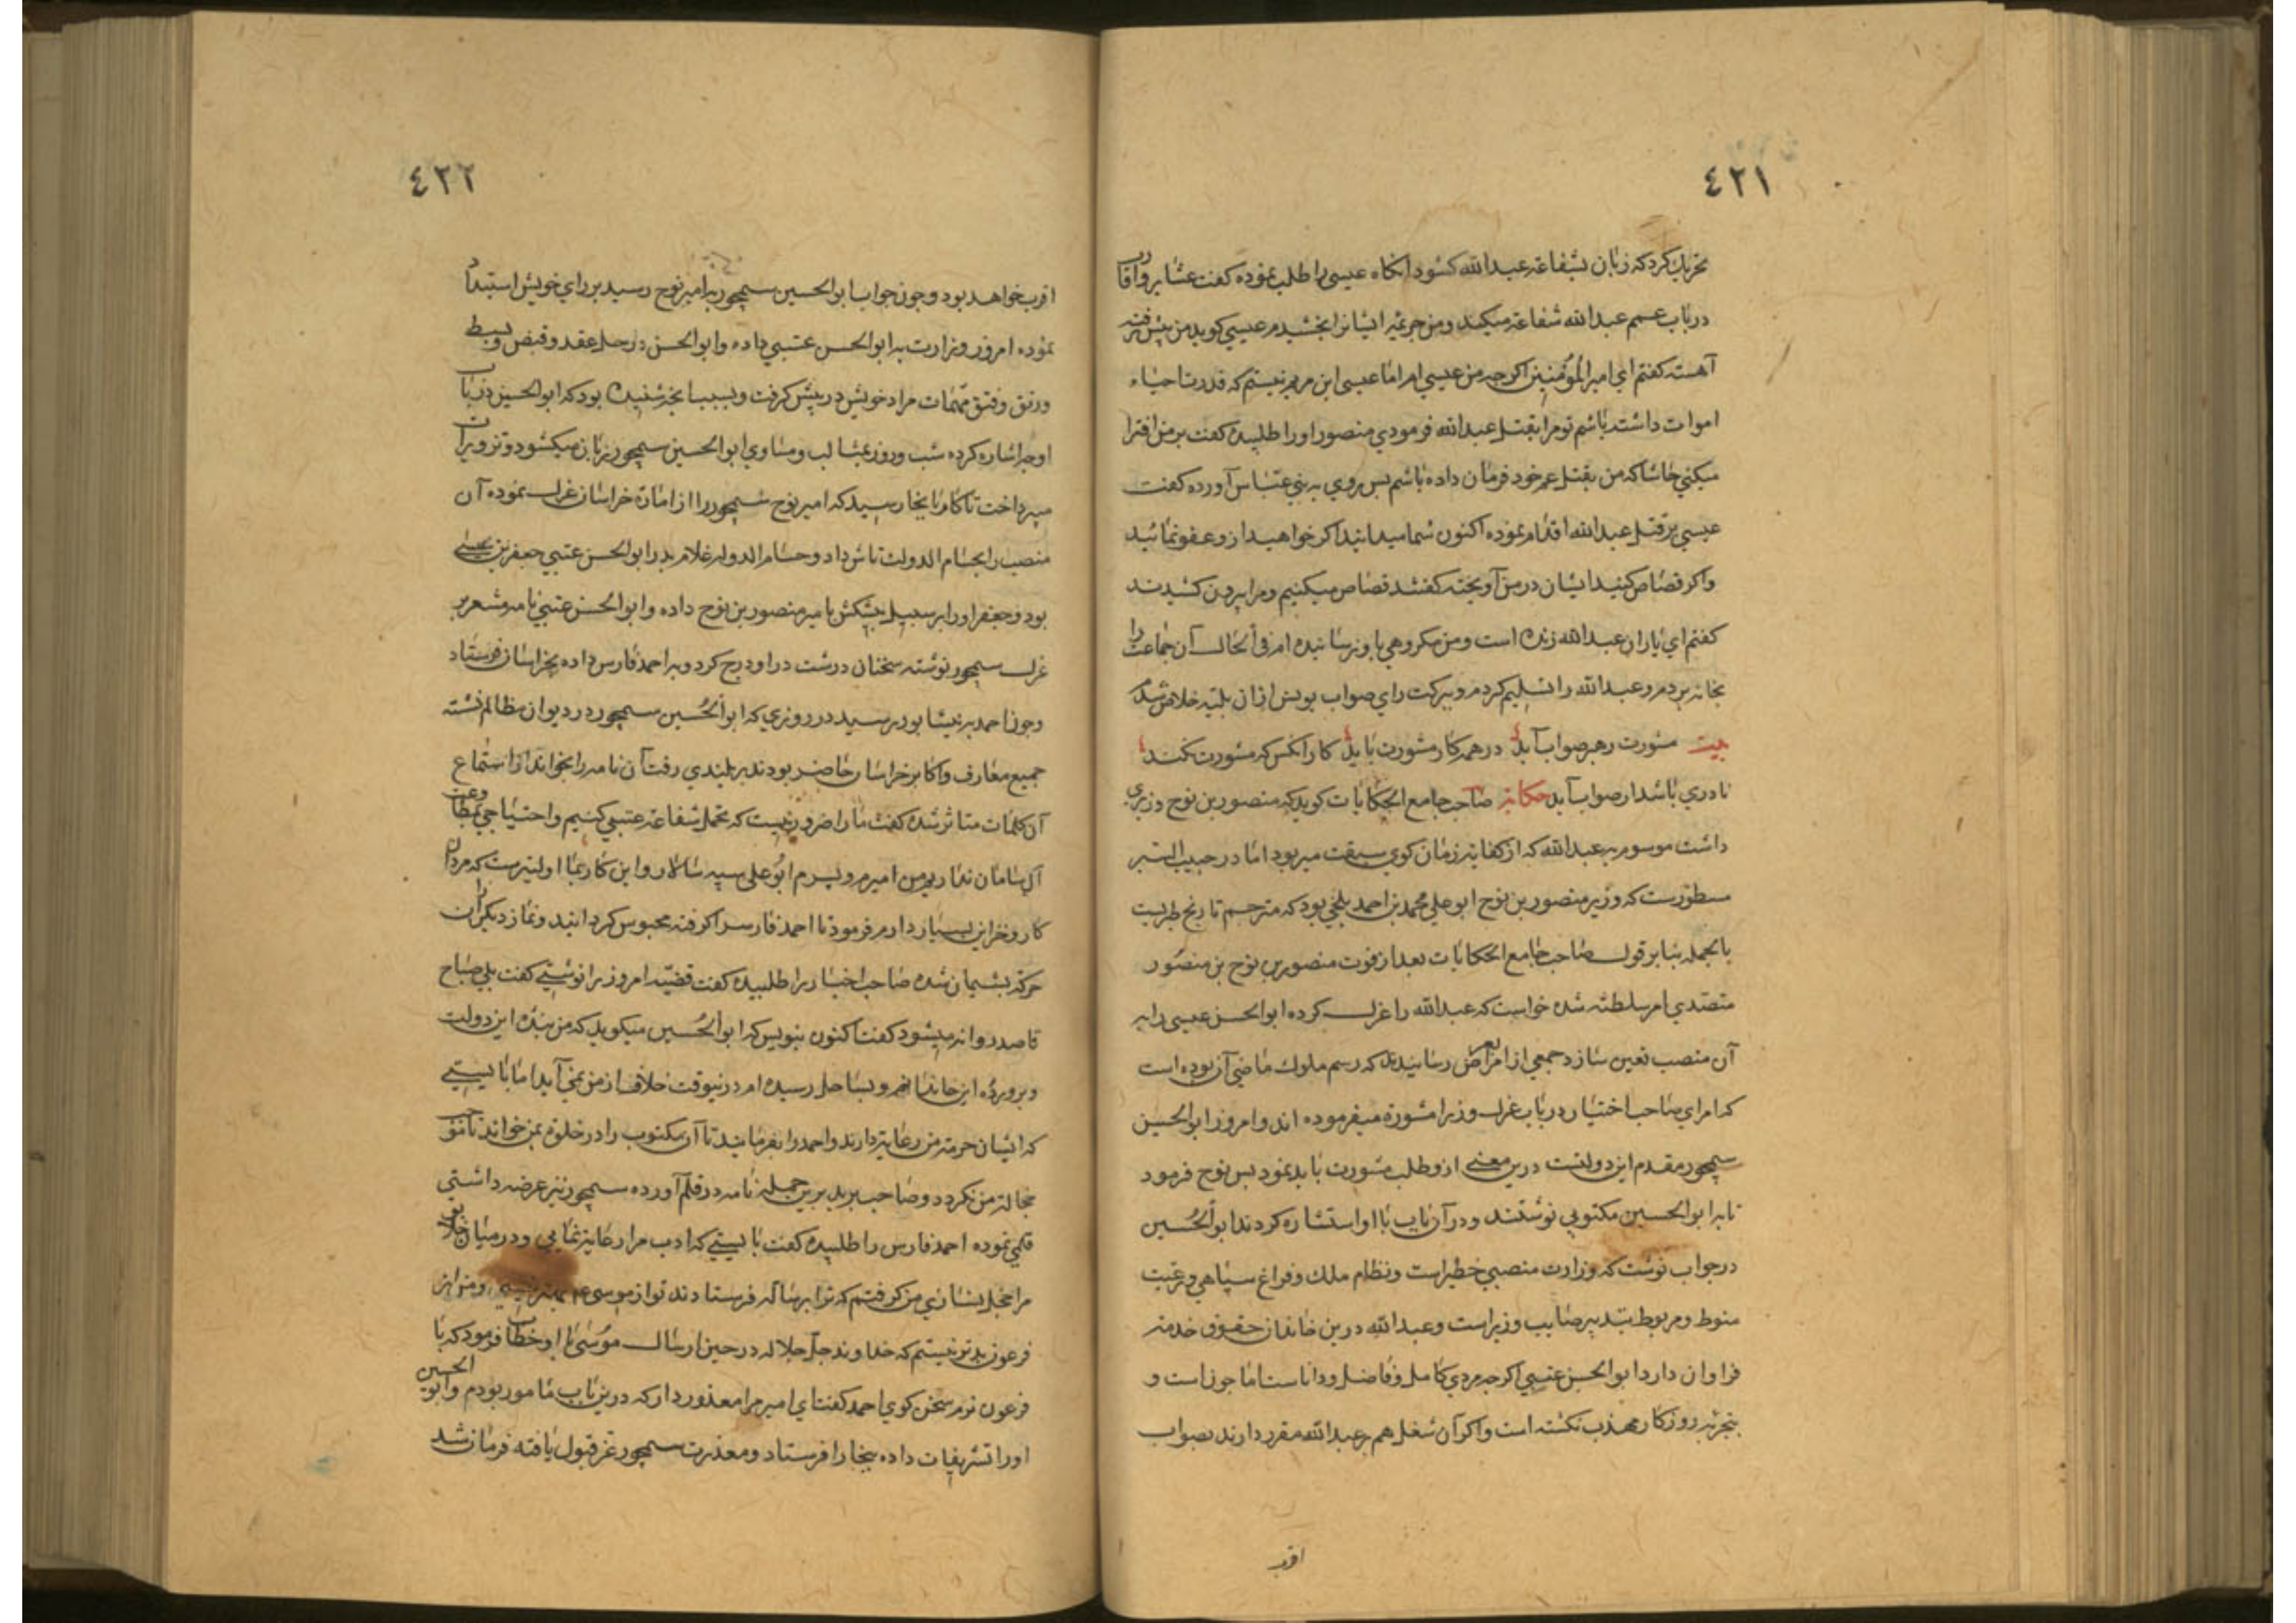 ٤٢١
تحریک کرد که زبان بشفاعة عبدالله کشود انکاه عیسی را طلب نموده کفت عشایر واقارب
در باب عمم عبدالله شفاعة میکند ومن جریمه ایشانرا بخشیدم عیسی کوید من پیش رفته
آهسته کفتم ای امیر المؤمنین اکرچه من عیسی ام اما عیسی ابن مریم نیستم که قدرت احیاء
اموات داشته باشم تو مرا بقتل عبدالله فرمودی منصور اورا طلبیده کفت بر من افترا
میکنی حاشا که من بقتل عم خود فرمان داده باشم پس روی به بنی عباس آورده کفت
عیسی بر قتل عبدالله اقدام نموده اکنون شما میدانید اکر خواهید ازو عفو نمائید
واکر قصاص کنید ایشان در من آویخته کفتند قصاص میکنیم ومرا بیرون کشیدند
کفتم ای یاران عبدالله زنده است ومن مکروهی باو نرسانیده ام فی الحال آن جماعت را
بخانه بردم وعبدالله را تسلیم کردم وببرکت رای صواب یونس ازان بلیه خلاص شدم
بیت مشورت رهبر صواب آید در همه کار مشورت باید کار آنکس که مشورت نکند
نادری باشد ار صواب آید حکایة صاحب جامع الحکایات کوید که منصور بن نوح وزیری
داشت موسوم به عبدالله که از کفایة زمان کوی سبقت میربود اما در حبیب السیر
مسطورست که وزیر منصور بن نوح ابو علی محمد بن احمد بلخی بود که مترجم تاریخ طبریست
بالجمله بنا بر قول صاحب جامع الحکایات بعد از فوت منصور بن نوح نوح بن منصور
متصدی امر سلطنة شده خواست که عبدالله را عزل کرده ابوالحسن عیسی را به
آن منصب تعین سازد جمعی از امرا بعرض رسانیدند که رسم ملوک ماضی آن بوده است
که امرای صاحب اختیار در باب عزل وزیرا مشورة میفرموده اند وامروز ابوالحسین
سمجور مقدم این دولتست درین معنی ازو طلب مشورت باید نمود پس نوح فرمود
تا به ابوالحسین مکتوبی نوشتند ودر آن باب با او استشاره کردند ابوالحسین
در جواب نوشت که وزارت منصبی خطیراست ونظام ملک وفراغ سپاهی ورعیت
منوط ومربوط بتدبیر صایب وزیر است وعبدالله درین خاندان حقوق خدمة
فراوان دارد ابوالحسن عتبی اکرچه مردی کامل وفاضل وداناست اما جوانست و
بتجربه روزکار مهذب نکشته است واکر آن شغل هم بر عبدالله مقرر دارند بصواب
اقرب
٤٢٢
اقرب خواهد بود وچون جواب ابوالحسین سمجور به امیر نوح رسید بر رای خویش استبداد
نموده امروز وزارت به ابوالحسن عتبی داده وابوالحسن در حل وعقد وقبض وبسط
ورتق وفتق مهمات مراد خویش در پیش کرفت وبسبب آنچه شنیده بود که ابوالحسین در باب
او چه اشاره کرده شب وروز بمثالب ومساوی ابوالحسین سمجور زبان میکشود وتزویرات
میپرداخت تا کار بانجا رسید که امیر نوح سمجور را از امارة خراسان عزل نموده آن
منصب را بحسام الدولت تاش داد وحسام الدوله غلام پدر ابوالحسن عتبی جعفر بن
بود وجعفر اورا بر سبیل پیشکش بامیر منصور بن نوح داده وابوالحسن عتبی نامه مشعر بر
عزل سمجور نوشته سخنان درشت در او درج کرد وبه احمد فارس داده بخراسان فرستاد
وچون احمد به نیشابور رسید در روزی که ابوالحسین سمجور در دیوان مظالم نشسته
جمیع معارف واکابر خراسان حاضر بودند به بلندی رفت آن نامه را بخواند از استماع
آن کلمات متاثر شده کفت مارا ضرور نیست که تحمل شفاعة عتبی کنیم واحتیاجی بمطاوعت
آل سامان نداریم من امیرم وپسرم ابو علی سپه سالار واین کار بما اولیترست که مردان
کار وخزاین بسیار دارم فرمود تا احمد فارس را کرفته محبوس کردانند ونماز دیکر ازان
حرکه پشیمان شده صاحب اخبار را طلبیده کفت قضیه امروز را نوشتی کفت بلی صباح
قاصد روانه میشود کفت اکنون بنویس که ابوالحسین میکوید که من بنده این دولت
وپرورده این خاندانم وبساحل رسیده ام درینوقت خلاف از من نمی آید اما بایستی
که ایشان حرمة من رعایة دارند واحمد را بفرمایند تا آن مکتوب را در خلوة بمن خواند تا
خجالة من نکردد وصاحب برید برین جمله نامه در قلم آورده سمجور نیز عرضه داشتی
قلمی نموده احمد فارس را طلبیده کفت بایستی که ادب مرا رعایة نمایی ودر میان خلایق
مرا خجل نسازی من کرفتم که ترا برسالة فرستادند تو از موسی ومن از
فرعون بدتر نیستم که خداوند جل جلاله در حین ارسال موسی با او خطاب فرمود که با
فرعون نرم سخن کوی احمد کفت ای امیر مرا معذور دار که درین باب مامور بودم وابوالحسین
اورا تشریفات داده ببخارا فرستاد ومعذرت سمجور عز قبول یافته فرمان شد